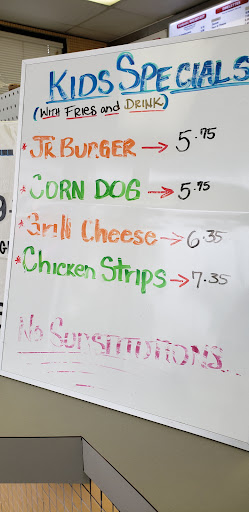 KIDS SPECIALS
(WITH FRIES and DRINK)
* JR BURGER → 5.75
* CORN DOG → 5.75
* Grill Cheese → 6.35
* Chicken Strips → 7.35
No SUBSTITUTIONS...